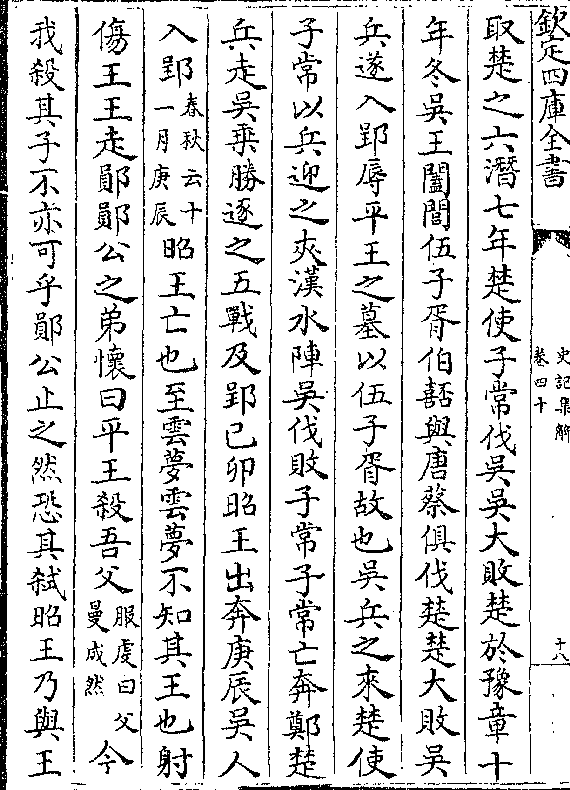 欽定四庫全書
史記集解
卷四十
十八
取楚之六潛七年楚使子常伐吳吳大敗楚於豫章十
年冬吳王闔閭伍子胥伯嚭與唐蔡俱伐楚楚大敗吳
兵遂入郢辱平王之墓以伍子胥故也吳兵之來楚使
子常以兵迎之夾漢水陣吳伐敗子常子常亡奔鄭楚
兵走吳乗勝逐之五戰及郢已卯昭王出奔庚辰吳人
入郢春秋云十一月庚辰昭王亡也至雲夢雲夢不知其王也射
傷王王走鄖鄖公之弟懷曰平王殺吾父服虔曰父曼成然今
我殺其子不亦可乎鄖公止之然恐其弑昭王乃與王